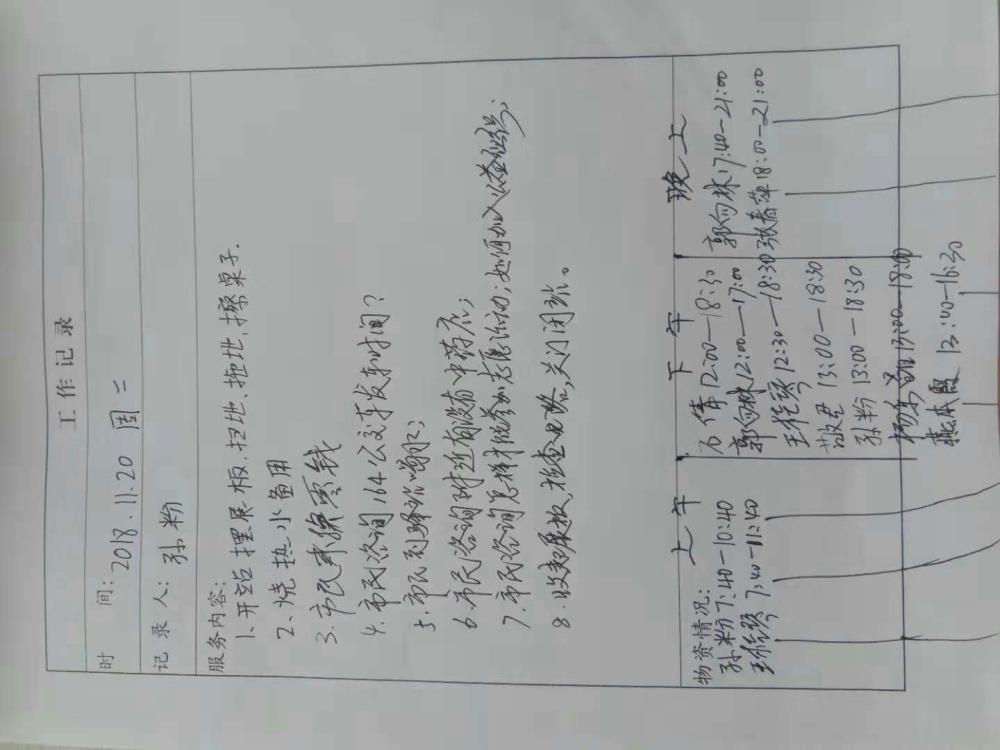 工作记录
时 间: 2018.11.20 周二
记 录 人: 孙粉
服务内容:
1、开站摆展板、扫地、拖地、擦桌子.
2、烧热水备用
3、市民来换零钱
4、市民咨询,64公交车发车时间?
5、市民到驿站喝水;
6、市民咨询附近有没有中药店;
7、市民咨询怎样能参加志愿活动;如何加入公益组织;
8.收起展板、检查电路,关门闭站。
物资情况:
上午
孙粉 7:40-10:40
7:40-11:40
下午
石倩 12:00-18:30
郭向林 12:00-17:00
12:30-18:30
敬君 13:00-18:30
孙粉 13:00-18:30
13:00-18:00
燕本霞 13:40-16:30
晚上
郭向林 17:40-21:00
张春萍 18:00-21:00